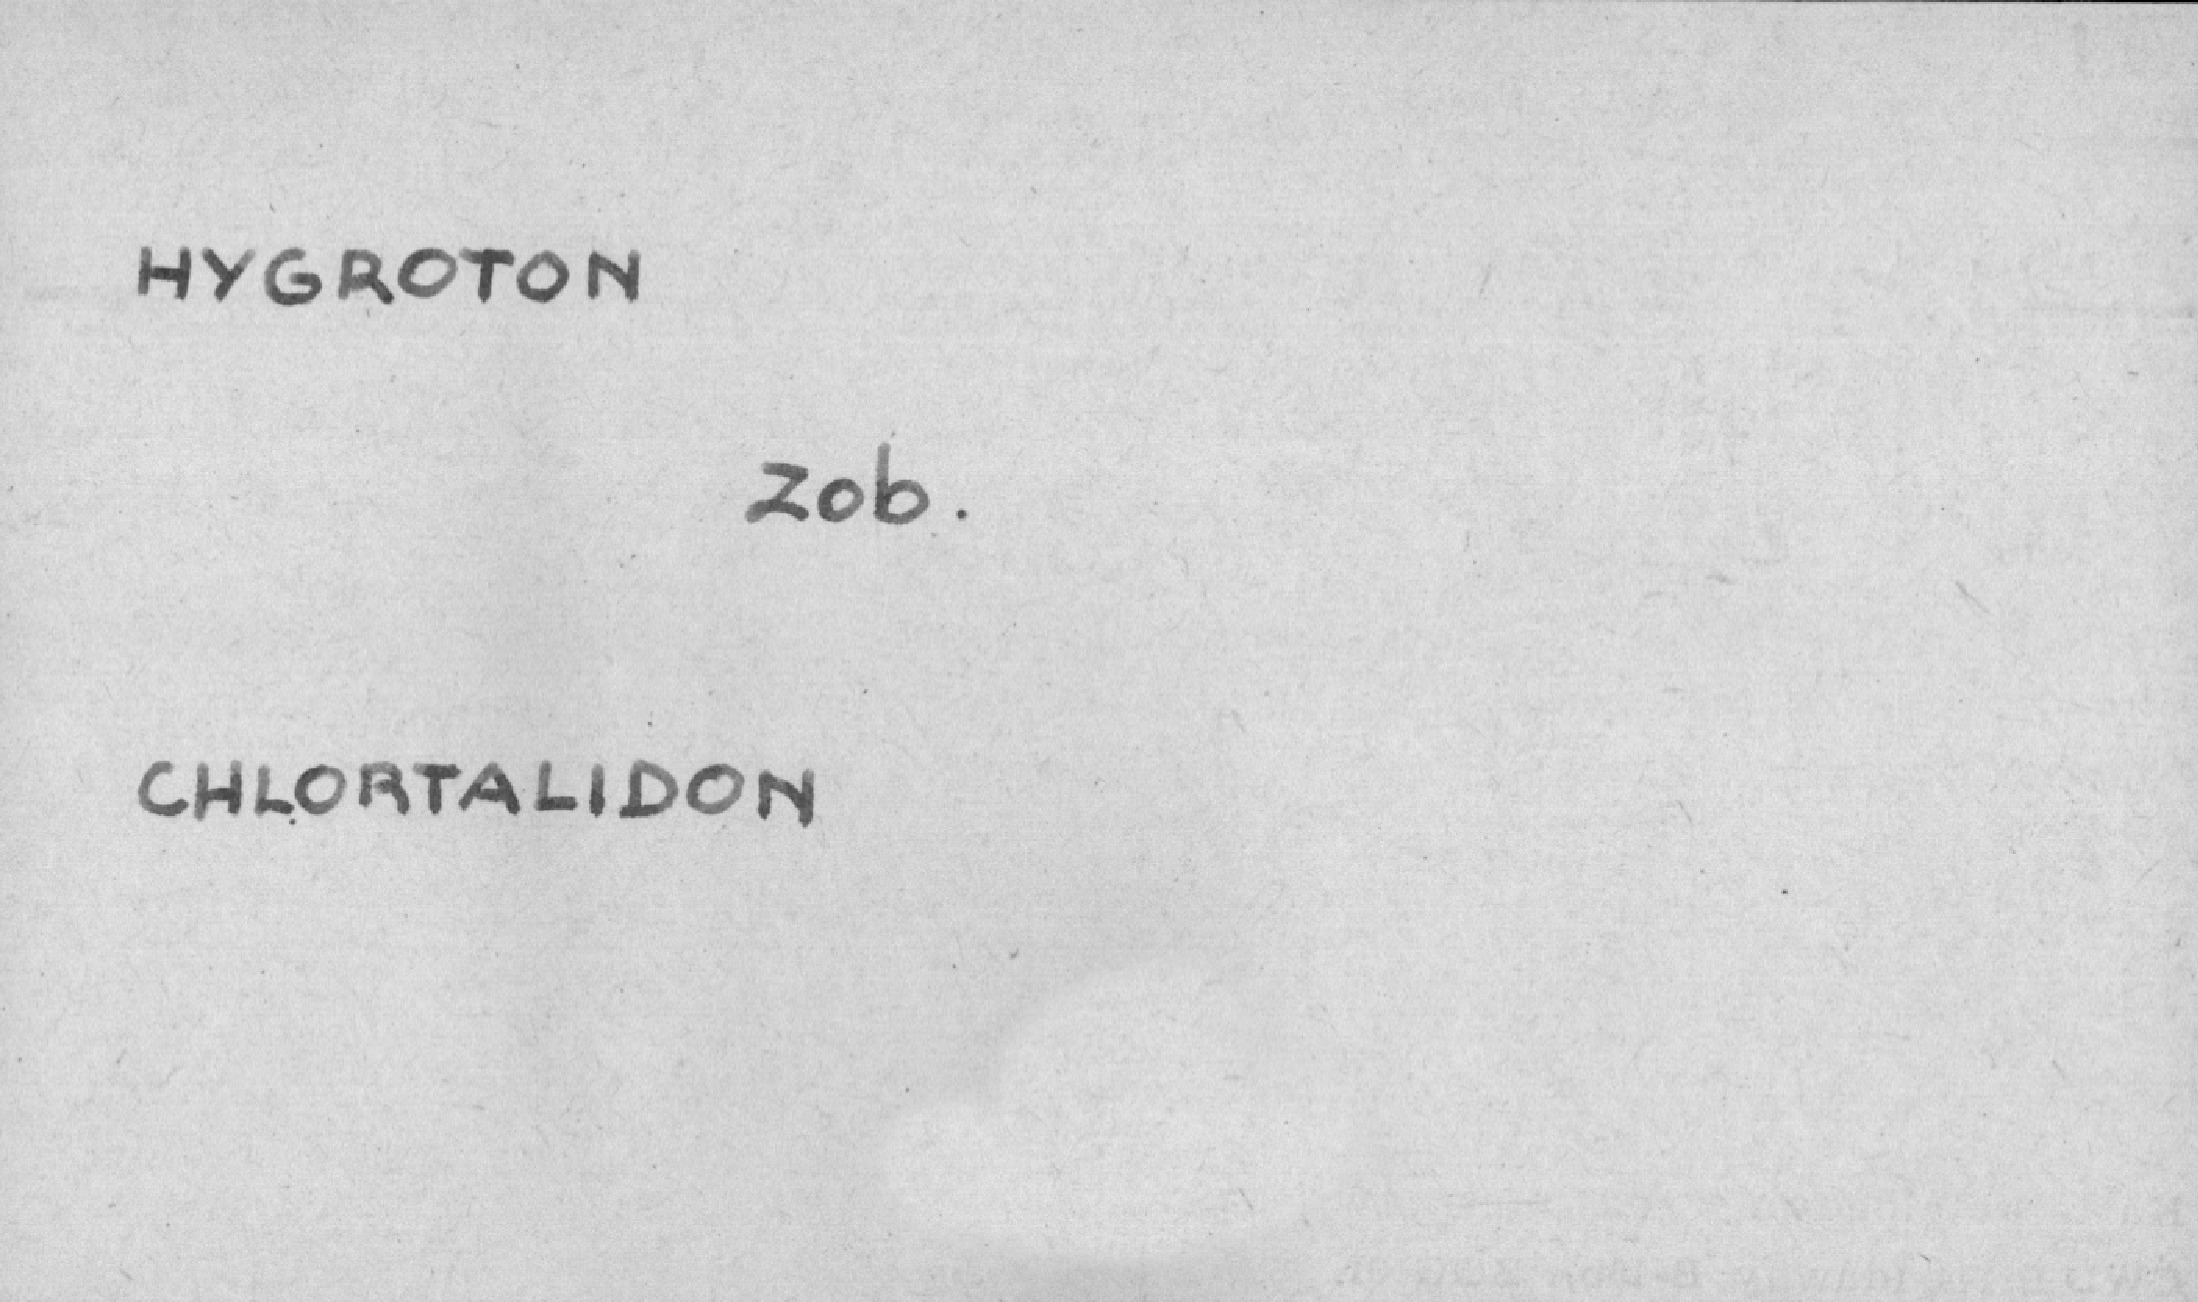 HYGROTON
Zob.
CHLORTALIDON